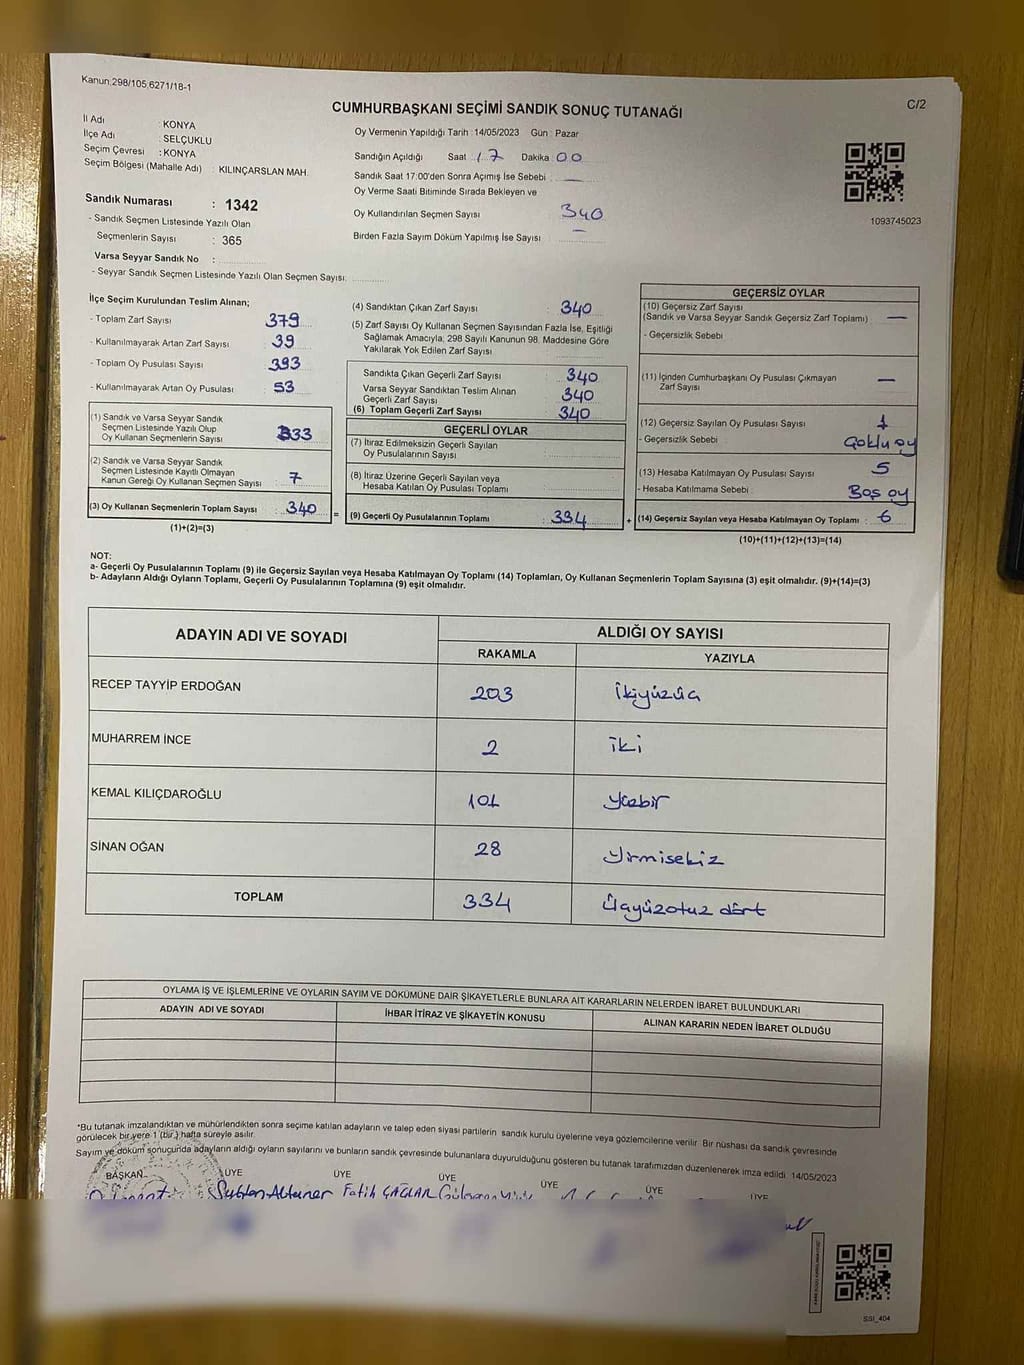 Kanun:298/105,6271/18-1
C/2
CUMHURBAŞKANI SEÇİMİ SANDIK SONUÇ TUTANAĞI
İl Adı : KONYA
İlçe Adı : SELÇUKLU
Seçim Çevresi : KONYA
Seçim Bölgesi (Mahalle Adı) : KILINÇARSLAN MAH.
Sandık Numarası : 1342
- Sandık Seçmen Listesinde Yazılı Olan
Seçmenlerin Sayısı : 365
Varsa Seyyar Sandık No :
- Seyyar Sandık Seçmen Listesinde Yazılı Olan Seçmen Sayısı:
Oy Vermenin Yapıldığı Tarih :14/05/2023 Gün : Pazar
Sandığın Açıldığı Saat : 17 Dakika : 00
Sandık Saat 17:00'den Sonra Açımış İse Sebebi : —
Oy Verme Saati Bitiminde Sırada Bekleyen ve
Oy Kullandırılan Seçmen Sayısı : 340
Birden Fazla Sayım Döküm Yapılmış İse Sayısı : —
1093745023
İlçe Seçim Kurulundan Teslim Alınan;
- Toplam Zarf Sayısı : 379
- Kullanılmayarak Artan Zarf Sayısı : 39
- Toplam Oy Pusulası Sayısı : 393
- Kullanılmayarak Artan Oy Pusulası : 53
(1) Sandık ve Varsa Seyyar Sandık
Seçmen Listesinde Yazılı Olup
Oy Kullanan Seçmenlerin Sayısı : 333
(2) Sandık ve Varsa Seyyar Sandık
Seçmen Listesinde Kayıtlı Olmayan
Kanun Gereği Oy Kullanan Seçmen Sayısı : 7
(3) Oy Kullanan Seçmenlerin Toplam Sayısı : 340
(1)+(2)=(3)
(4) Sandıktan Çıkan Zarf Sayısı : 340
(5) Zarf Sayısı Oy Kullanan Seçmen Sayısından Fazla İse, Eşitliği
Sağlamak Amacıyla, 298 Sayılı Kanunun 98. Maddesine Göre
Yakılarak Yok Edilen Zarf Sayısı :
Sandıkta Çıkan Geçerli Zarf Sayısı : 340
Varsa Seyyar Sandıktan Teslim Alınan
Geçerli Zarf Sayısı : 340
(6) Toplam Geçerli Zarf Sayısı : 340
GEÇERLİ OYLAR
(7) İtiraz Edilmeksizin Geçerli Sayılan
Oy Pusulalarının Sayısı :
(8) İtiraz Üzerine Geçerli Sayılan veya
Hesaba Katılan Oy Pusulası Toplamı :
= (9) Geçerli Oy Pusulalarının Toplamı : 334
GEÇERSİZ OYLAR
(10) Geçersiz Zarf Sayısı
(Sandık ve Varsa Seyyar Sandık Geçersiz Zarf Toplamı) : —
- Geçersizlik Sebebi
(11) İçinden Cumhurbaşkanı Oy Pusulası Çıkmayan
Zarf Sayısı : —
(12) Geçersiz Sayılan Oy Pusulası Sayısı : 1
- Geçersizlik Sebebi : Çoklu oy
(13) Hesaba Katılmayan Oy Pusulası Sayısı : 5
- Hesaba Katılmama Sebebi : Boş oy
+ (14) Geçersiz Sayılan veya Hesaba Katılmayan Oy Toplamı : 6
(10)+(11)+(12)+(13)=(14)
NOT:
a- Geçerli Oy Pusulalarının Toplamı (9) ile Geçersiz Sayılan veya Hesaba Katılmayan Oy Toplamı (14) Toplamları, Oy Kullanan Seçmenlerin Toplam Sayısına (3) eşit olmalıdır. (9)+(14)=(3)
b- Adayların Aldığı Oyların Toplamı, Geçerli Oy Pusulalarının Toplamına (9) eşit olmalıdır.
ADAYIN ADI VE SOYADI ALDIĞI OY SAYISI
RAKAMLA YAZIYLA
RECEP TAYYİP ERDOĞAN 203 İkiyüzüç
MUHARREM İNCE 2 iki
KEMAL KILIÇDAROĞLU 101 yüzbir
SİNAN OĞAN 28 yirmisekiz
TOPLAM 334 üçyüzotuz dört
OYLAMA İŞ VE İŞLEMLERİNE VE OYLARIN SAYIM VE DÖKÜMÜNE DAİR ŞİKAYETLERLE BUNLARA AİT KARARLARIN NELERDEN İBARET BULUNDUKLARI
ADAYIN ADI VE SOYADI İHBAR İTİRAZ VE ŞİKAYETİN KONUSU ALINAN KARARIN NEDEN İBARET OLDUĞU
*Bu tutanak imzalandıktan ve mühürlendikten sonra seçime katılan adayların ve talep eden siyasi partilerin sandık kurulu üyelerine veya gözlemcilerine verilir. Bir nüshası da sandık çevresinde
görülecek bir yere 1 (bir) hafta süreyle asılır.
Sayım ve döküm sonucunda adayların aldığı oyların sayılarını ve bunların sandık çevresinde bulunanlara duyurulduğunu gösteren bu tutanak tarafımızdan düzenlenerek imza edildi 14/05/2023
BAŞKAN ÜYE ÜYE ÜYE ÜYE ÜYE ÜYE
Fatih ÇAĞLAR
SSI_404